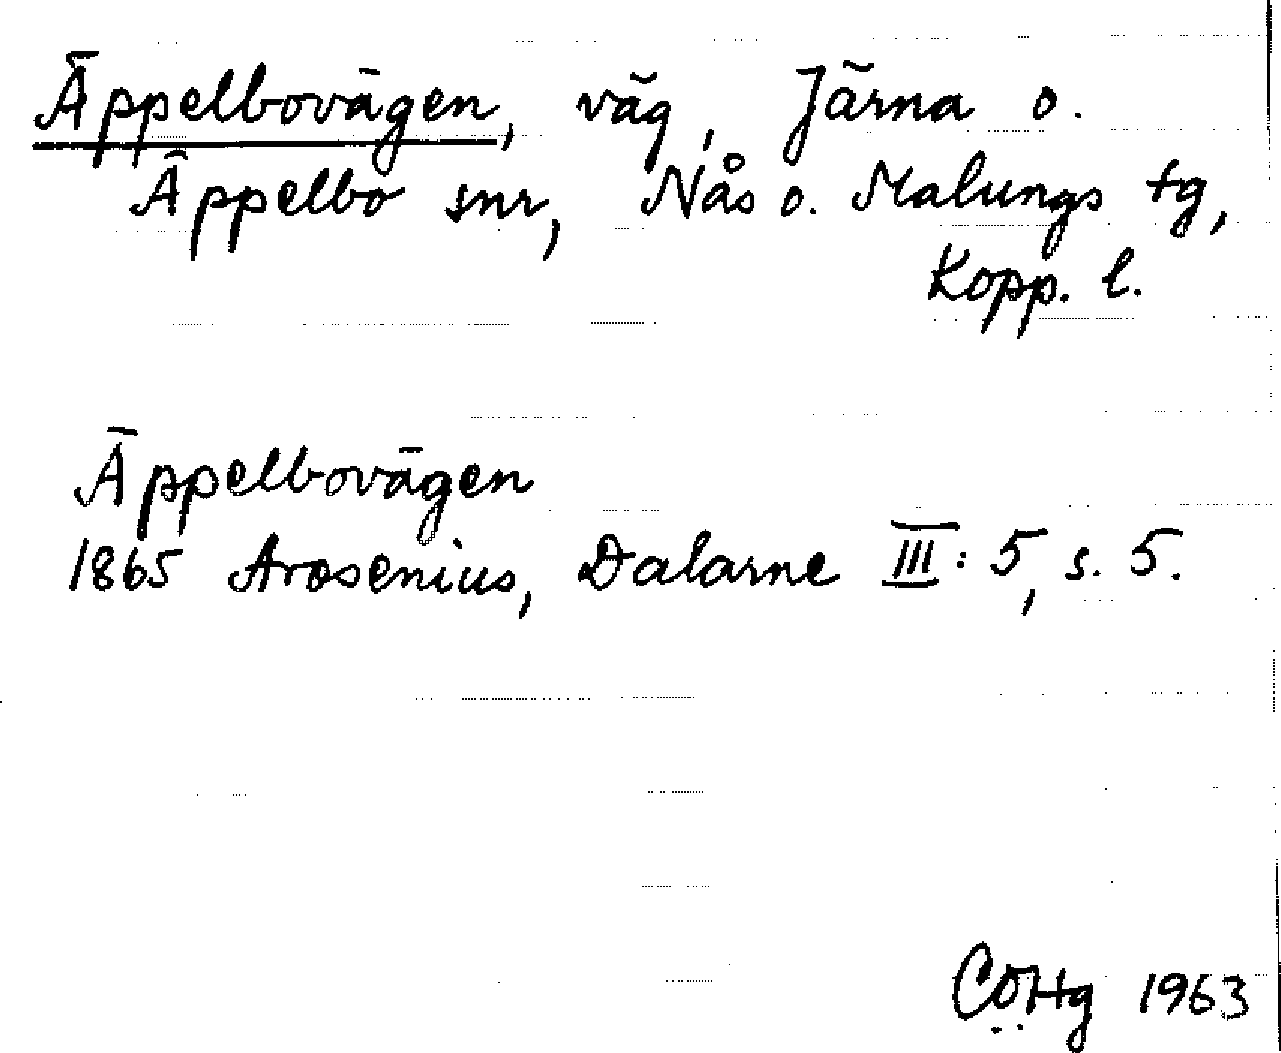 Äppelbovägen, väg, Järna o.
Äppelbo snr, Nås o. Malungs tg,
Kopp. l.
Äppelbovägen
1865 Arosenius, Dalarne III:5, s. 5.
CÖHg 1963